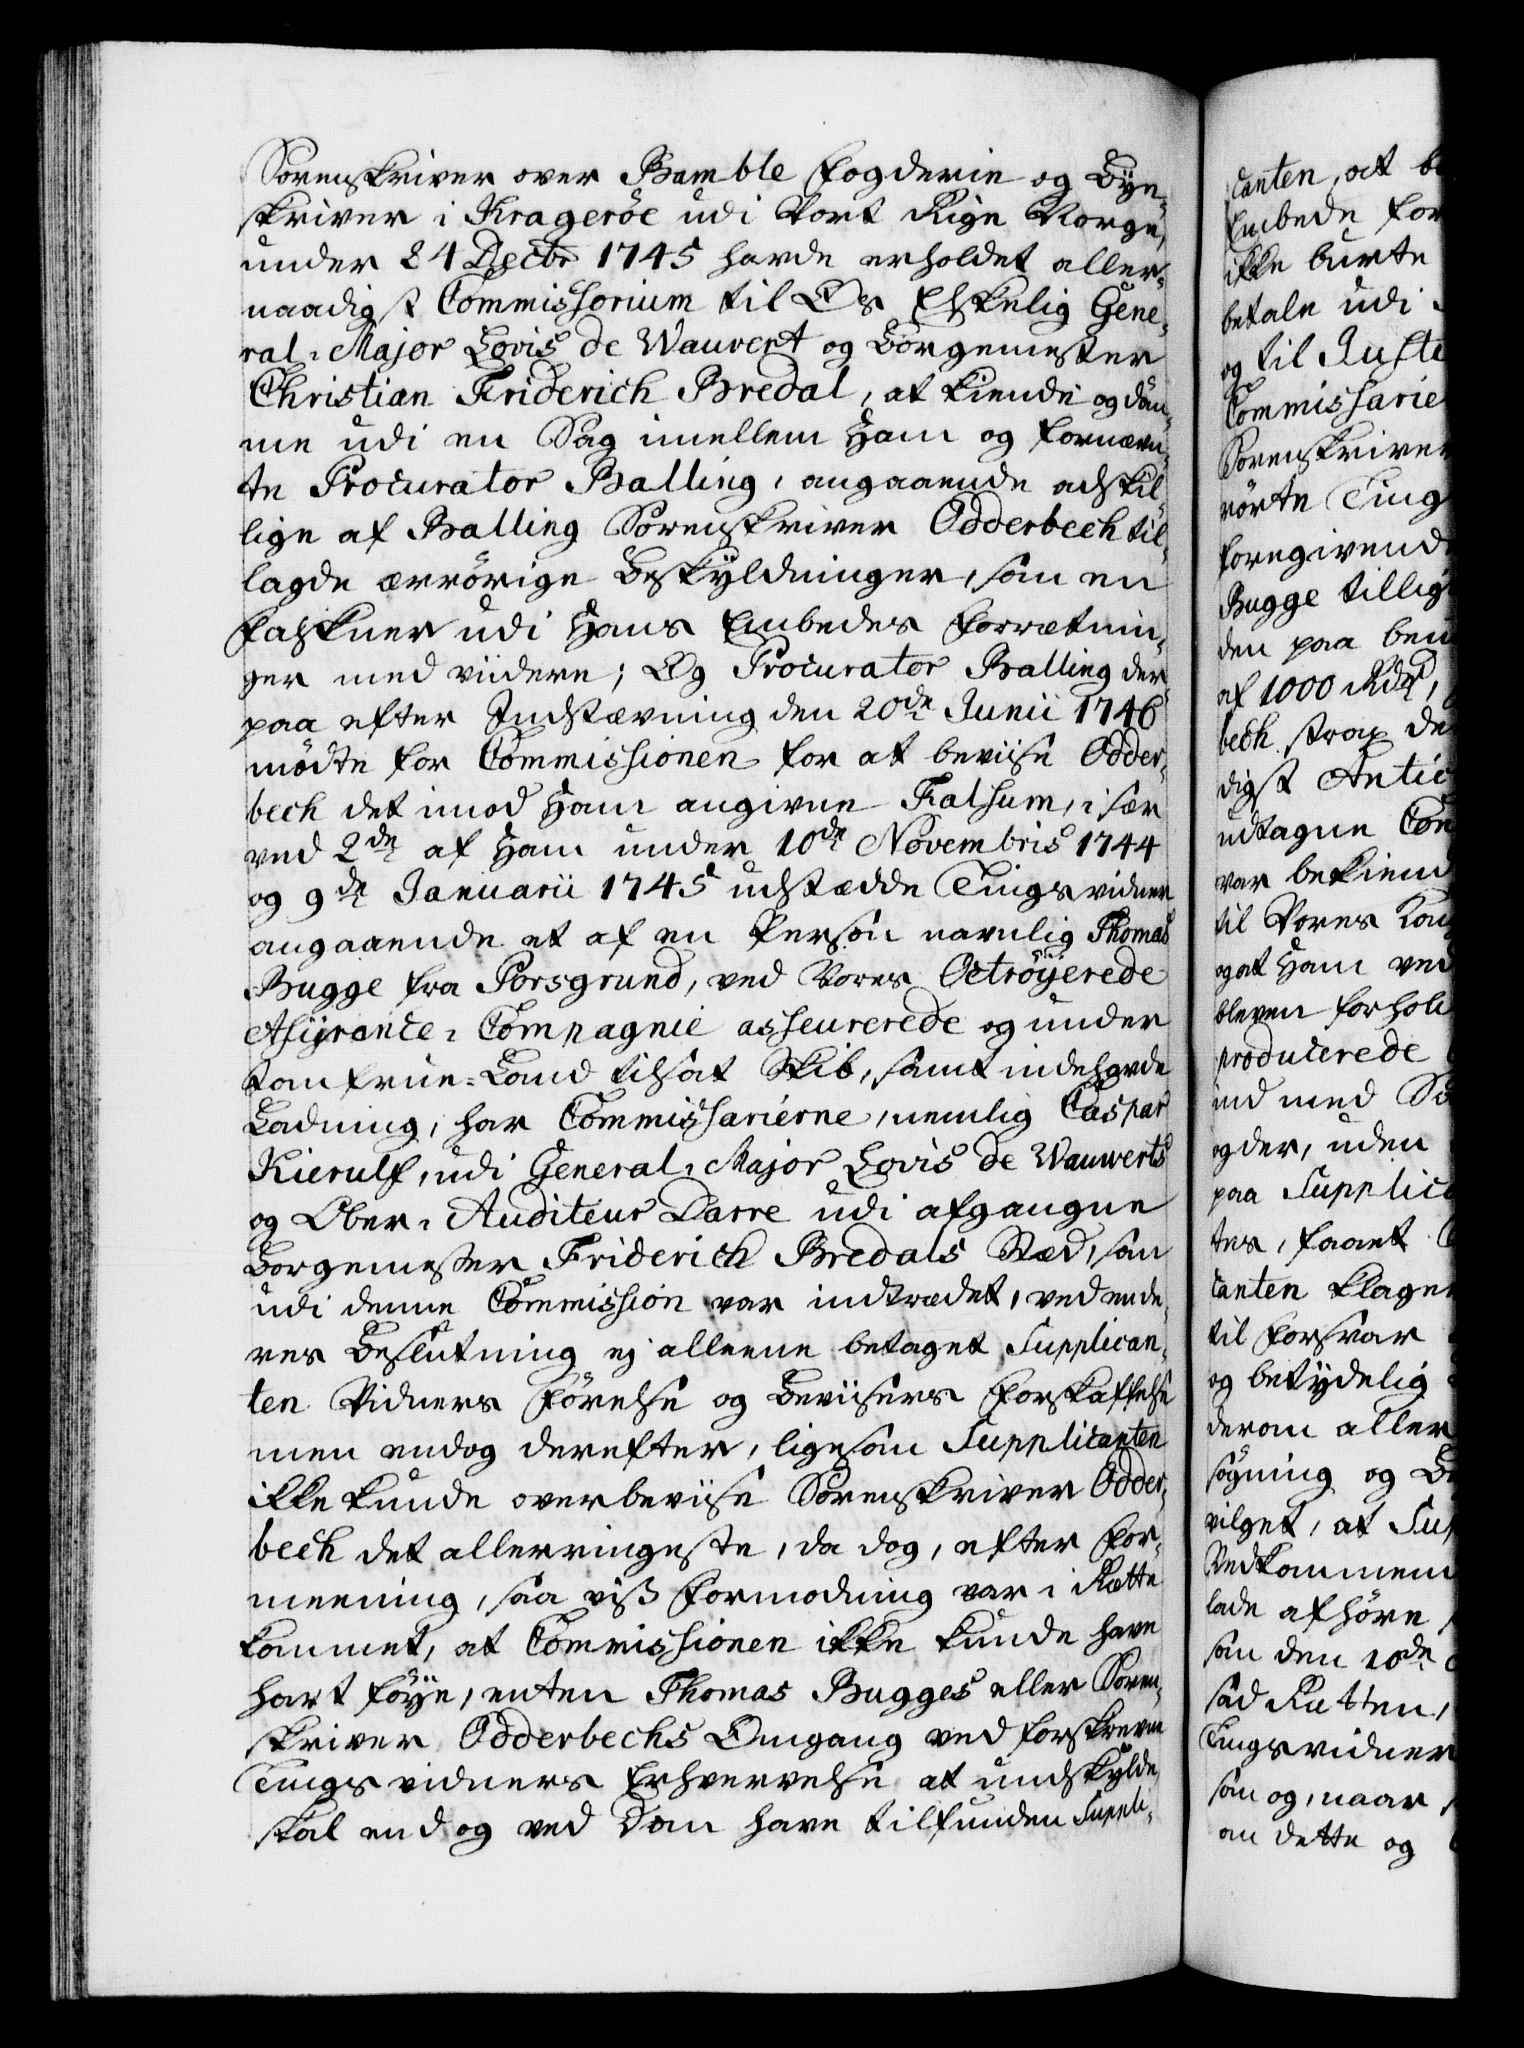 Sorenskriver over Bamble Fogderie og Bye-
skriver i Krageröe udi Vort Rige Norge,
under 24 Decbr 1745 havde erholdet aller-
naadigst Commissorium til Os Elskelig Gene-
ral-Major Lovis de Wauvert og Borgemester
Christian Friderich Bredal, at kiende og döm-
me udi en Sag imellem Ham og fornævn-
te Procurator Balling, angaaende adskil-
lige af Balling Sorenskriver Odderbech til-
lagde ærrörige Beskyldninger, som en
Falskner udi Hans Embedes Forrætnin-
ger med viidere; Og Procurator Balling der-
paa efter Indstævning den 20de Junii 1746
mödte for Commissionen for at beviise Odder-
bech det imod Ham angivne Falsum, i sær
ved 2de af Ham under 10de Novembris 1744
og 9de Januarii 1745 udstædde Tingsvidner
angaaende et af en Person navnlig Thomas
Bugge fra Porsgrund, ved Vores Octroÿerede
Assÿrance-Compagnie asseurerede og under
Jomfrue-Land tilsat Skib, samt indehavde
Ladning, har Commissarierne, nemlig Caspar
Kierulf, udi General-Major Lovis de Wauverts
og Ober-Auditeur Darre udi afgangne
Borgemester Friderich Bredals Stæd, som
udi denne Commission var indtrædet, ved en de-
res Beslutning ej alleene betaget Supplican-
ten Vidners Förelse og Beviisers Forskaffelse
men endog derefter, ligesom Supplicanten
ikke kunde overbeviise Sorenskriver Odder-
bech det allerringeste, da dog, efter For-
meening, saa viss Formodning var i Rette
kommet, at Commissionen ikke kunde have
havt föÿe, enten Thomas Bugges eller Soren-
skriver Odderbechs Omgang ved forskrevne
Tingsvidners Erhvervelse at undskylde,
skal endog ved Dom have tilfunden Suppli-
canten, at
Embede for
ikke burte
betale udi
og til Juste
Commissarie
Sorenskriver
rörte Ting
foregivende
Bugge tillig
den paa
af 1000 Rdr,
bech strax de
digst Antic
udtagne Con
var bekiend
til Vores
og at Ham ved
bleven forhol
producerede
ind med So
og der, uden
paa Supplica
ter, faaet
canten klager
til forsvar
og betydelig
derom aller
sögning og Be
vilget, at Sup
Vedkommend
lade afhöre
som den 10de
sad Retten,
Tingsvidner
som og, naar
om dette og